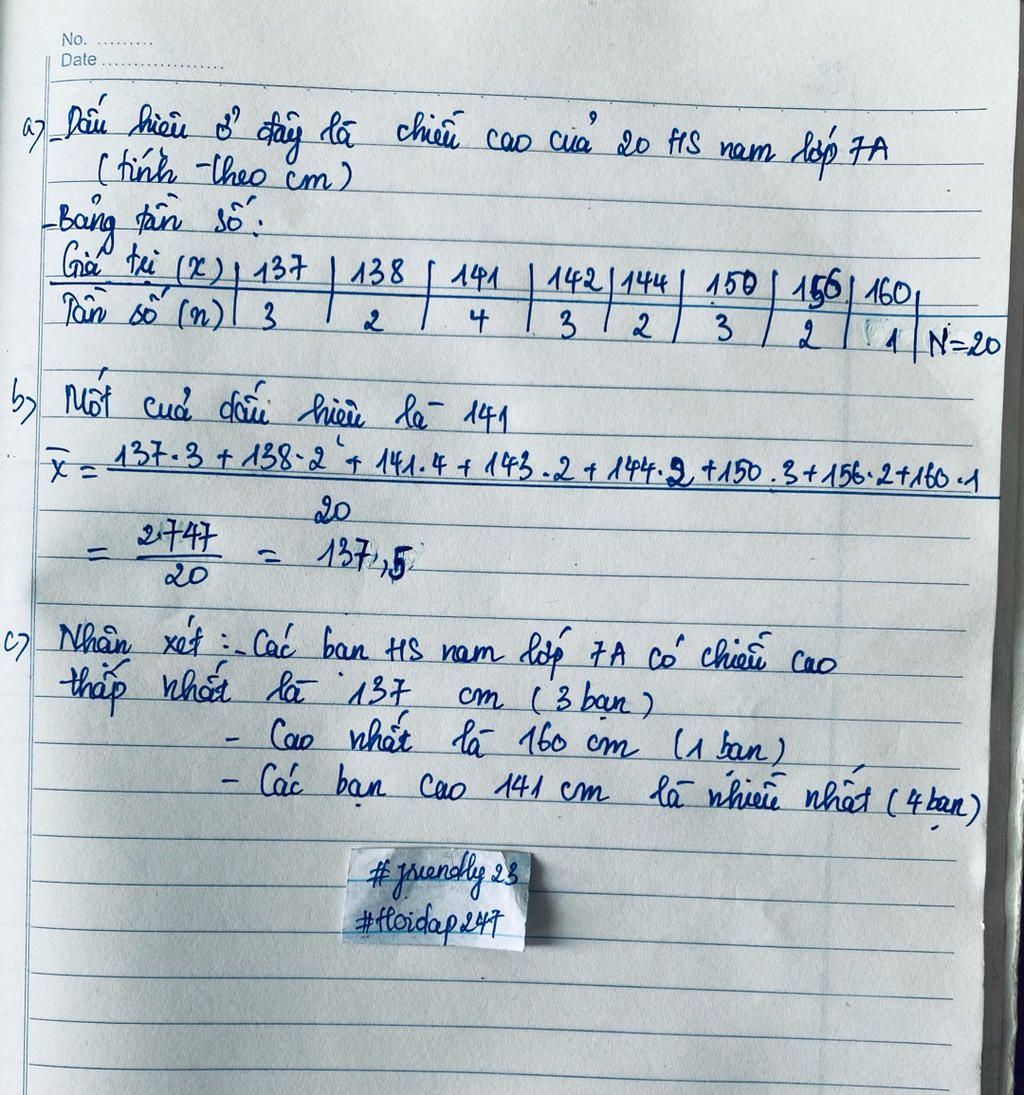 No. .........
Date ...................
a) - Dấu hiệu ở đây là chiều cao của 20 HS nam lớp 7A
(tính theo cm)
- Bảng tần số:
Giá trị (x) | 137 | 138 | 141 | 142 | 144 | 150 | 156 | 160 |
Tần số (n) | 3 | 2 | 4 | 3 | 2 | 3 | 2 | 1 | N=20
b) Mốt của dấu hiệu là 141
x̄ = 137.3 + 138.2 + 141.4 + 143.2 + 144.2 + 150.3 + 156.2 + 160.1
20
= 2747 / 20 = 137,5
c) Nhận xét: - Các bạn HS nam lớp 7A có chiều cao
thấp nhất là 137 cm (3 bạn)
- Cao nhất là 160 cm (1 bạn)
- Các bạn cao 141 cm là nhiều nhất (4 bạn)
#friendly23
#Hoidap247